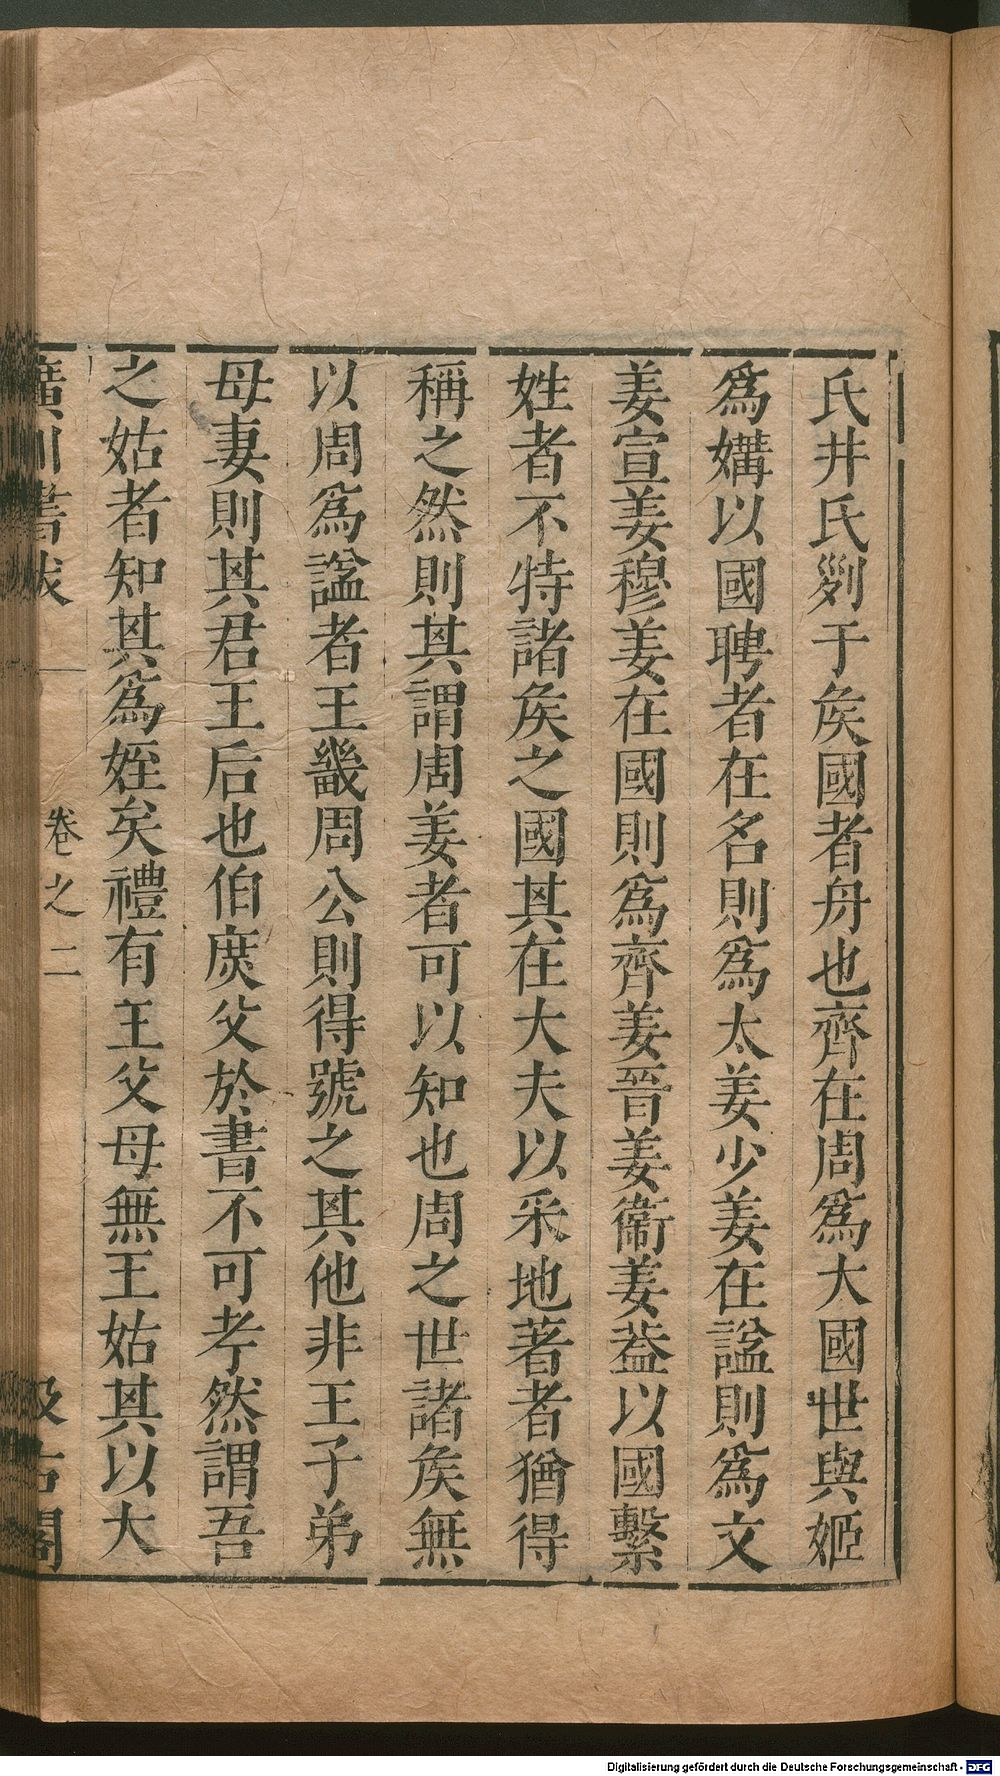 氏井氏剡于矦國者舟也齊在周爲大國世與姬
爲媾以國聘者在名則爲太姜少姜在諡則爲文
姜宣姜穆姜在國則爲齊姜晉姜衞姜葢以國繫
姓者不特諸矦之國其在大夫以采地著者猶得
稱之然則其謂周姜者可以知也周之世諸矦無
以周爲諡者王畿周公則得號之其他非王子弟
母妻則其君王后也伯庶父於書不可考然謂吾
之姑者知其爲姪矣禮有王父母無王姑其以大
廣川書跋 卷之二 汲古閣
Digitalisierung gefördert durch die Deutsche Forschungsgemeinschaft - DFG